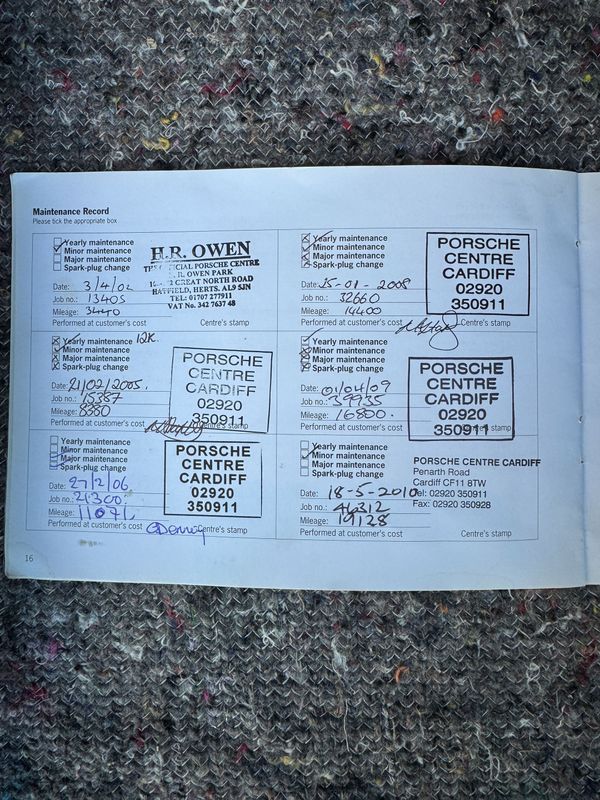 Maintenance Record
Please tick the appropriate box
Yearly maintenance
Minor maintenance
Major maintenance
Spark-plug change
Date: 3/4/02
Job no.: 13405
Mileage: 3440
Performed at customer's cost
Centre's stamp
H.R. OWEN
OFFICIAL PORSCHE CENTRE
R. OWEN PARK
GREAT NORTH ROAD
HATFIELD, HERTS. AL9 5JN
TEL: 01707 277911
VAT No. 342 7637 48
Yearly maintenance 12K.
Minor maintenance
Major maintenance
Spark-plug change
Date: 21/02/2005.
Job no.: 15387
Mileage: 8380
Performed at customer's cost
Centre's stamp
PORSCHE
CENTRE
CARDIFF
02920
350911
Yearly maintenance
Minor maintenance
Major maintenance
Spark-plug change
Date: 27/2/06
Job no.: 21300
Mileage: 11071
Performed at customer's cost
Centre's stamp
PORSCHE
CENTRE
CARDIFF
02920
350911
16
Yearly maintenance
Minor maintenance
Major maintenance
Spark-plug change
Date: 25-01-2008
Job no.: 32660
Mileage: 14400
Performed at customer's cost
Centre's stamp
PORSCHE
CENTRE
CARDIFF
02920
350911
Yearly maintenance
Minor maintenance
Major maintenance
Spark-plug change
Date: 01/04/09
Job no.: 39935
Mileage: 16800.
Performed at customer's cost
Centre's stamp
PORSCHE
CENTRE
CARDIFF
02920
350911
Yearly maintenance
Minor maintenance
Major maintenance
Spark-plug change
Date: 18-5-2010
Job no.: 46312
Mileage: 19128
Performed at customer's cost
Centre's stamp
PORSCHE CENTRE CARDIFF
Penarth Road
Cardiff CF11 8TW
Tel: 02920 350911
Fax: 02920 350928